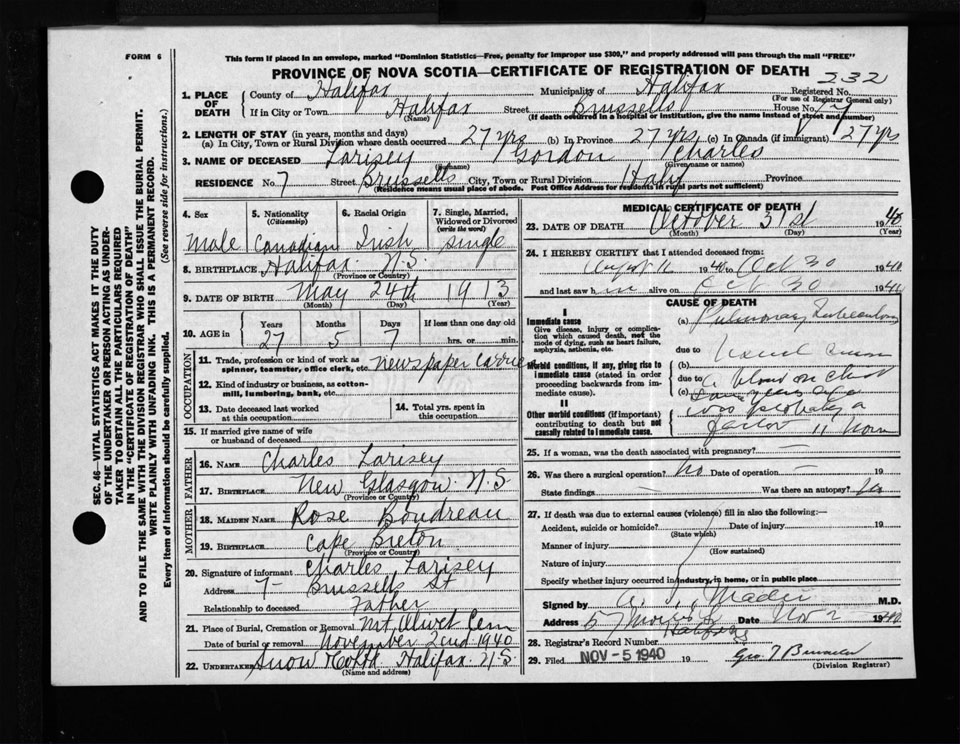 FORM 6
This form if placed in an envelope, marked "Dominion Statistics—Free, penalty for improper use $300," and properly addressed will pass through the mail "FREE"
PROVINCE OF NOVA SCOTIA—CERTIFICATE OF REGISTRATION OF DEATH
232
1. PLACE OF DEATH
County of Halifax Municipality of Halifax Registered No.
(For use of Registrar General only)
If in City or Town Halifax Street Brussells House No. 7
(Name) (If death occurred in a hospital or institution, give the name instead of street and number)
2. LENGTH OF STAY (in years, months and days)
(a) In City, Town or Rural Division where death occurred 27 yrs (b) In Province 27 yrs (c) In Canada (if immigrant) 27 yrs
3. NAME OF DECEASED Larisey Gordon Charles
(Given name or names)
RESIDENCE No. 7 Street Brussells City, Town or Rural Division Halif Province
(Residence means usual place of abode. Post Office Address for residents in rural parts not sufficient)
4. Sex 5. Nationality (Citizenship) 6. Racial Origin 7. Single, Married, Widowed or Divorced (write the word)
Male Canadian Irish Single
8. BIRTHPLACE Halifax N.S.
(Province or Country)
9. DATE OF BIRTH May 24th 1913
(Month) (Day) (Year)
10. AGE in Years Months Days If less than one day old
27 5 7 hrs. or min.
OCCUPATION
11. Trade, profession or kind of work as spinner, teamster, office clerk, etc. Newspaper Carrier
12. Kind of industry or business, as cotton-mill, lumbering, bank, etc.
13. Date deceased last worked at this occupation
14. Total yrs. spent in this occupation
15. If married give name of wife or husband of deceased
FATHER
16. NAME Charles Larisey
17. BIRTHPLACE New Glasgow N.S
(Province or Country)
MOTHER
18. MAIDEN NAME Rose Boudreau
19. BIRTHPLACE Cape Breton
(Province or Country)
20. Signature of informant Charles Larisey
Address 7- Brussells St
Relationship to deceased Father
21. Place of Burial, Cremation or Removal Mt Olivet Cem
Date of burial or removal November 2nd 1940
22. UNDERTAKER Snow Halifax N.S
(Name and address)
MEDICAL CERTIFICATE OF DEATH
23. DATE OF DEATH October 31st 1940
(Month) (Day) (Year)
24. I HEREBY CERTIFY that I attended deceased from:
August 1940 to Oct 30 1940
and last saw h im alive on Oct 30 1940
CAUSE OF DEATH
I
Immediate cause
Give disease, injury or complication which caused death, not the mode of dying, such as heart failure, asphyxia, asthenia, etc.
(a) Pulmonary Tuberculosis
due to
Morbid conditions, if any, giving rise to immediate cause (stated in order proceeding backwards from immediate cause).
(b)
due to a blow on chest
(c) years ago
II
Other morbid conditions (if important) contributing to death but not causally related to immediate cause.
was probably a
factor
25. If a woman, was the death associated with pregnancy?
26. Was there a surgical operation? No Date of operation — 19
State findings — Was there an autopsy? No
27. If death was due to external causes (violence) fill in also the following:—
Accident, suicide or homicide? Date of injury 19
(State which)
Manner of injury
(How sustained)
Nature of injury
Specify whether injury occurred in industry, in home, or in public place
Signed by Mader M.D.
Address 5 Morris St Date Nov 2 1940
Halifax
28. Registrar's Record Number
29. Filed NOV - 5 1940 19 Geo. T
(Division Registrar)
SEC. 46—VITAL STATISTICS ACT MAKES IT THE DUTY
OF THE UNDERTAKER OR PERSON ACTING AS UNDER-
TAKER TO OBTAIN ALL THE PARTICULARS REQUIRED
IN THE "CERTIFICATE OF REGISTRATION OF DEATH"
AND TO FILE THE SAME WITH THE DIVISION REGISTRAR WHO SHALL ISSUE THE BURIAL PERMIT.
WRITE PLAINLY WITH UNFADING INK. THIS IS A PERMANENT RECORD.
Every item of information should be carefully supplied. (See reverse side for instructions.)